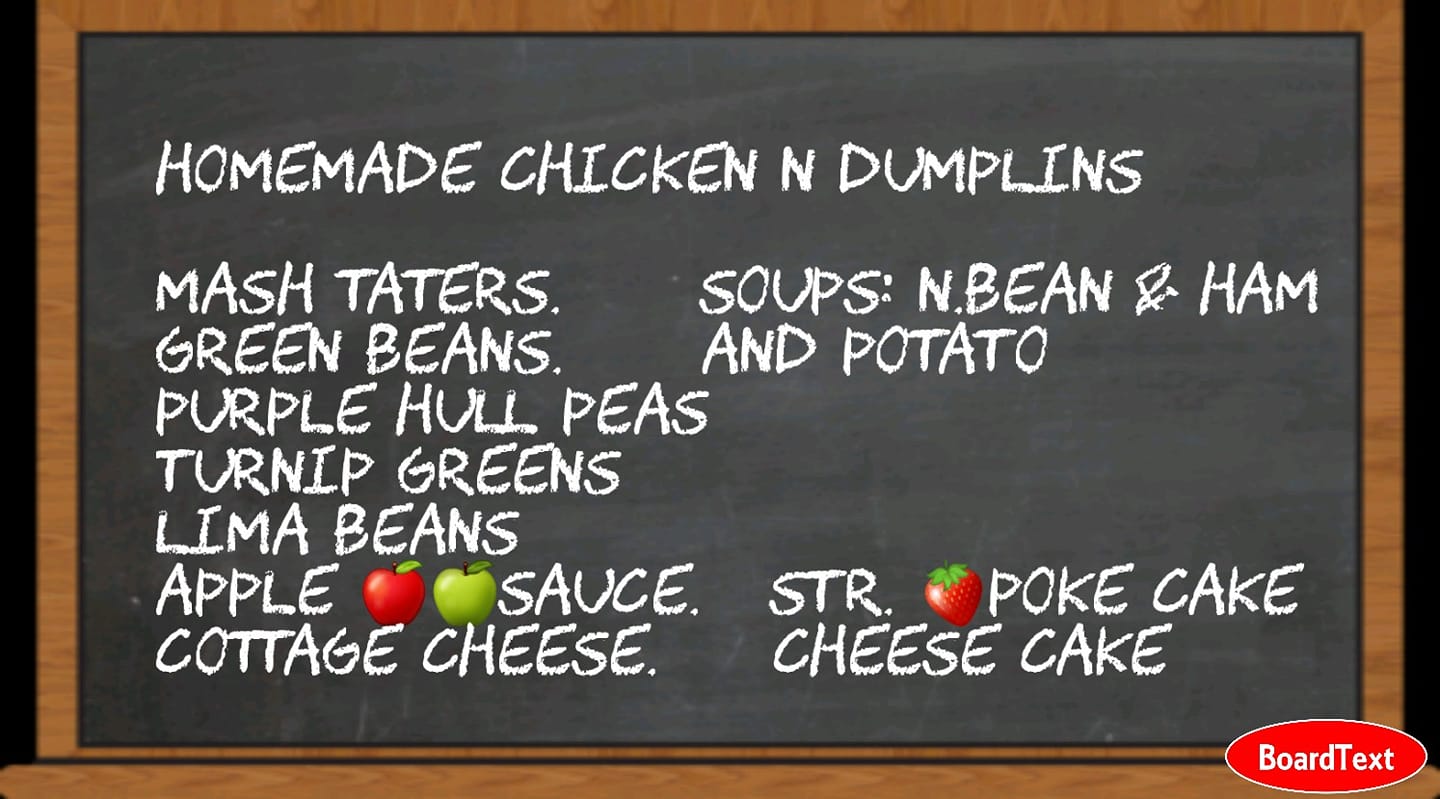 HOMEMADE CHICKEN N DUMPLINS
MASH TATERS. SOUPS: N.BEAN & HAM
GREEN BEANS. AND POTATO
PURPLE HULL PEAS
TURNIP GREENS
LIMA BEANS
APPLE 🍎🍏SAUCE. STR. 🍓POKE CAKE
COTTAGE CHEESE. CHEESE CAKE
BoardText